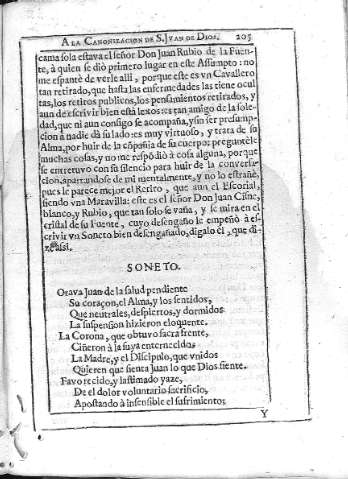 A LA CANONIZACION DE S. JVAN DE DIOS. 205
cama sola estava el señor Don Juan Rubio de la Fuen-
te, à quien se diò primero lugar en este Assumpto: no
me espantè de verle alli, porque este es vn Cavallero
tan retirado, que hasta las enfermedades las tiene ocul
tas, los retiros publicos, los pensamientos retirados, y
aun de escrivir bien està lexos: es tan amigo de la sole-
dad, que ni aun consigo se acompaña, y sin ser presump-
cion à nadie dà su lado: es muy virtuoso, y trata de su
Alma, por huir de la cõpañia de su cuerpo: preguntèle
muchas cosas, y no me respõdiò à cosa alguna, porque
se entretuvo con su silencio para huir de la conversa-
cion, apartandose de mi mentalmente, y no lo estrañè,
pues le parece mejor el Retiro, que aun el Escorial,
siendo vna Maravilla: este es el señor Don Juan Cisne,
blanco, y Rubio, que tan solo se vaña, y se mira en el
cristal de su Fuente, cuyo desengaño le empeñò à es-
crivir vn Soneto bien desengañado, digalo èl, que di-
ze assi.
SONETO.
Orava Juan de la salud pendiente
Su coraçon, el Alma, y los sentidos,
Que neutrales, despiertos, y dormidos
La suspension hizieron eloquente.
La Corona, que obtuvo sacra frente,
Ciñeron à la suya enternecidos
La Madre, y el Discipulo, que vnidos
Quieren que sienta Juan lo que Dios siente.
Favorecido, y lastimado yaze,
De el dolor voluntario sacrificio,
Apostando à insensible el sufrimiento;
Y